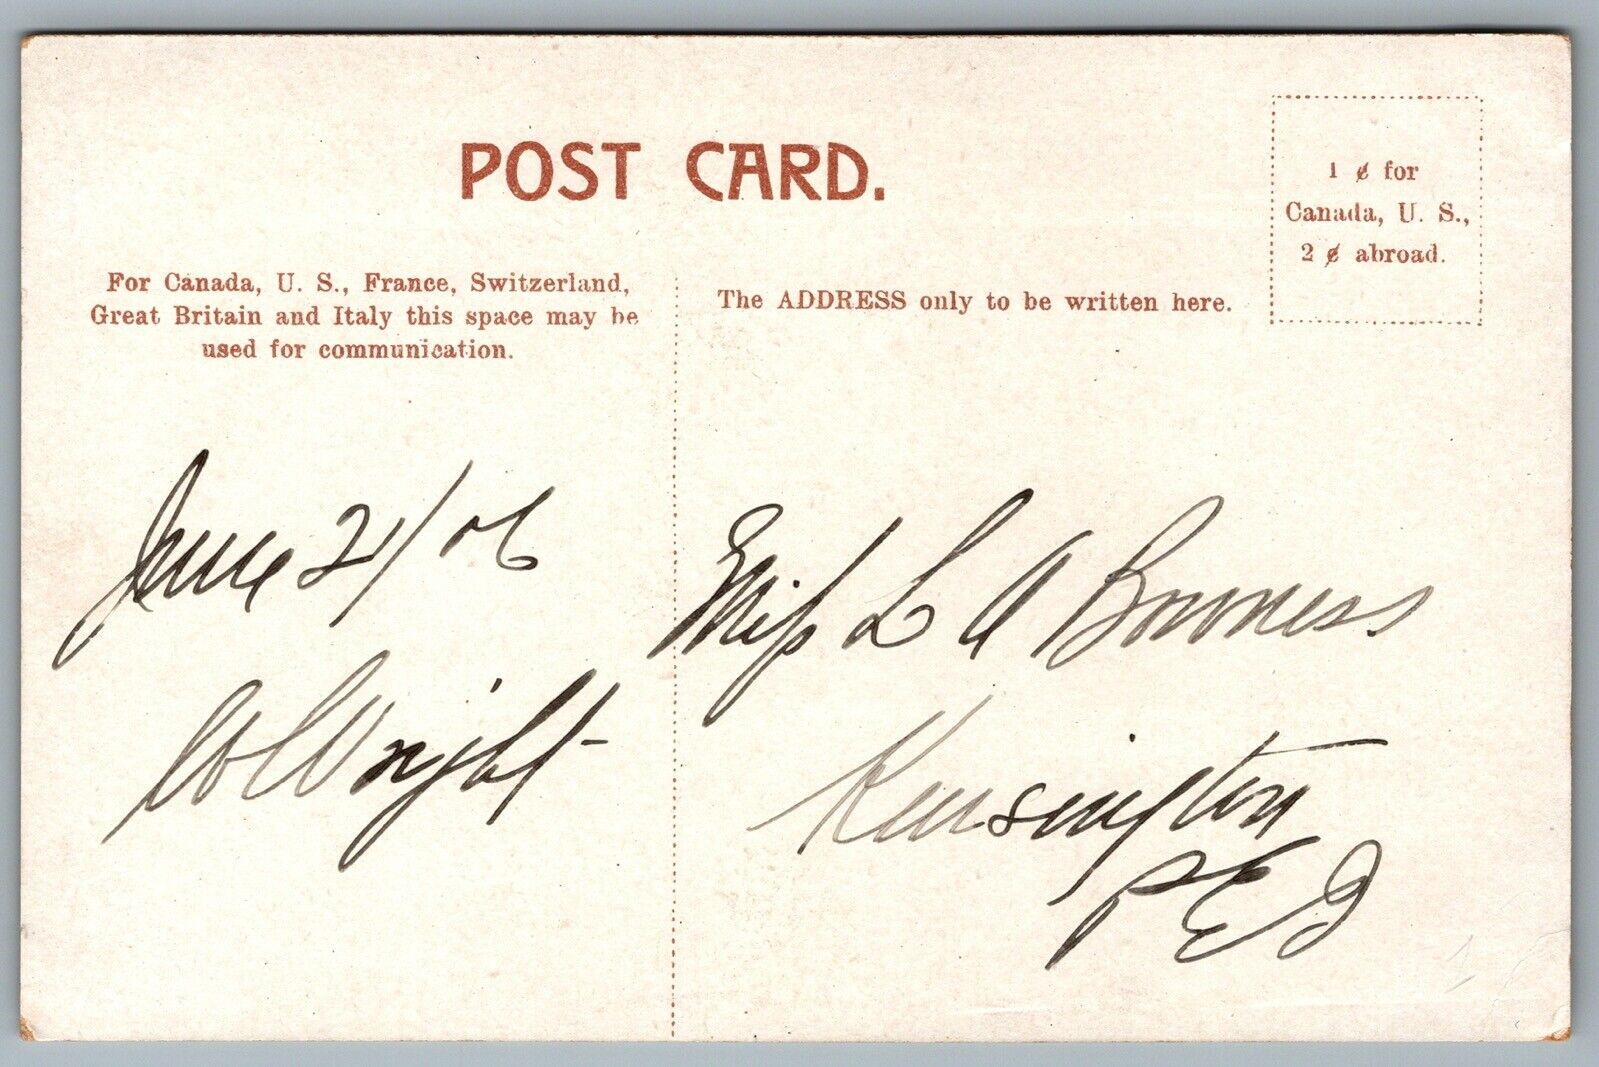 POST CARD.
1 ¢ for
Canada, U. S.,
2 ¢ abroad.
For Canada, U. S., France, Switzerland,
Great Britain and Italy this space may be
used for communication.
The ADDRESS only to be written here.
June 21/06
Wright
Miss L A Bowness
Kensington
P E I